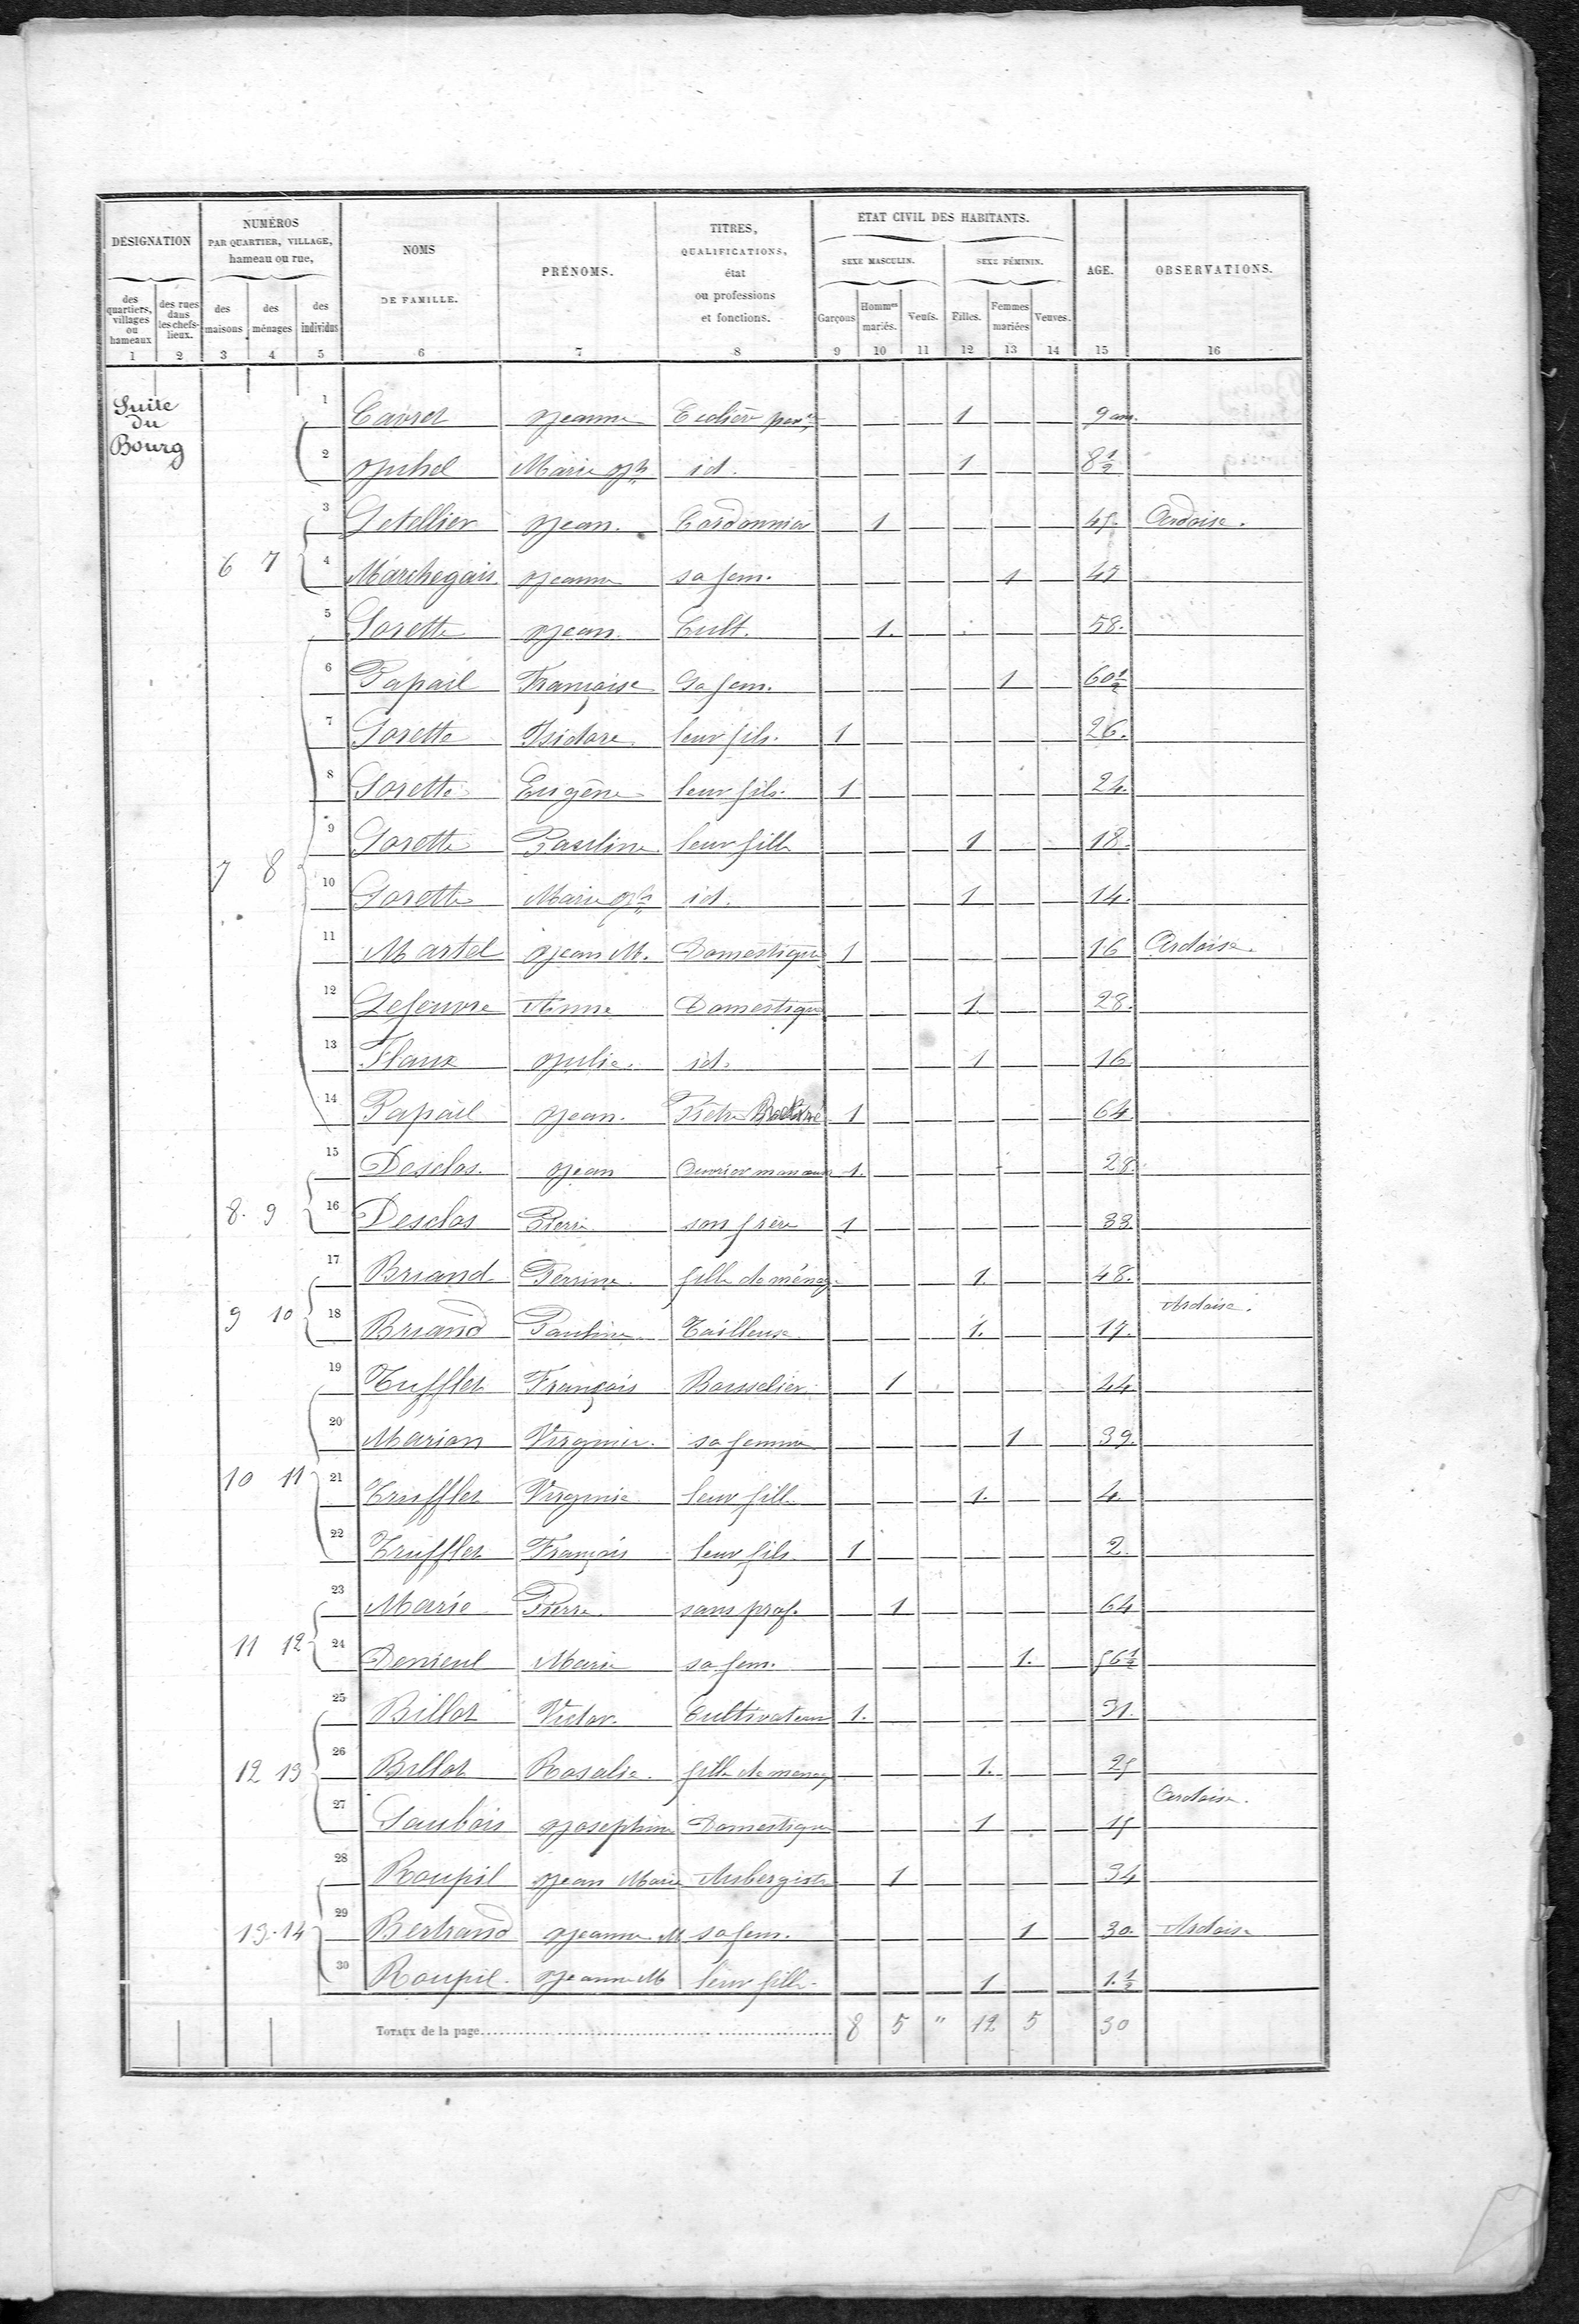 DÉSIGNATION | NUMÉROS PAR QUARTIER, VILLAGE, hameau ou rue, | NOMS DE FAMILLE. | PRÉNOMS. | TITRES, QUALIFICATIONS, état ou professions et fonctions. | ETAT CIVIL DES HABITANTS. | AGE. | OBSERVATIONS.
SEXE MASCULIN. | SEXE FÉMININ.
des quartiers, villages ou hameaux | des rues dans les chefs-lieux. | des maisons | des ménages | des individus | Garçons | Hommes mariés. | Veufs. | Filles. | Femmes mariées | Veuves.
1 2 3 4 5 6 7 8 9 10 11 12 13 14 15 16
Suite du Bourg
1 Cavret Jeanne Ecolière 1 9 ans.
2 Juhel Marie id. 1 8 1/2
3 Letellier Jean. Cordonnier 1 45. Ardoise.
6 7 4 Marchegais Jeanne sa fem. 1 47
5 Gorette Jean Cult. 1. 58.
6 Papail Françoise Sa fem. 1 60 1/2
7 Gorette Isidore leur fils. 1 26.
8 Gorette Eugène leur fils. 1 24.
9 Gorette Pauline leur fille 1 18.
7 8 10 Gorette Marie id. 1 14.
11 Martel Jean M. Domestique 1 16 Ardoise.
12 Lefeuvre Anne Domestique 1. 28.
13 Flaux Julie. id. 1 16
14 Papail Jean. Prêtre 1 64.
15 Desclos. Jean Ouvrier 1. 28.
8. 9 16 Desclos Pierre son frère 1 33.
17 Briand Perrine. fille de ménag. 1. 48.
9 10 18 Briand Pauline Tailleuse. 1. 17. Ardoise.
19 Truffler François Bourrelier 1 44
20 Marion Virginie. sa femme 1 39.
10 11 21 Truffler Virginie leur fill. 1. 4
22 Truffler François leur fils 1 2.
23 Marie Pierre. sans prof. 1 64
11 12 24 Denieul Marie sa fem. 1. 56 1/2
25 Billot Victor. Cultivateur 1. 31.
12 13 26 Billot Rosalie. fille de menag 1. 25
27 Saubois Josephine Domestique 1 15 Ardoise.
28 Roupil Jean Marie Aubergiste 1 34
13. 14 29 Bertrand Jeanne M sa fem. 1 30. Ardoise
30 Roupil. Jeanne M leur fille. 1 1. 1/2
TOTAUX de la page 8 5 " 12 5 30